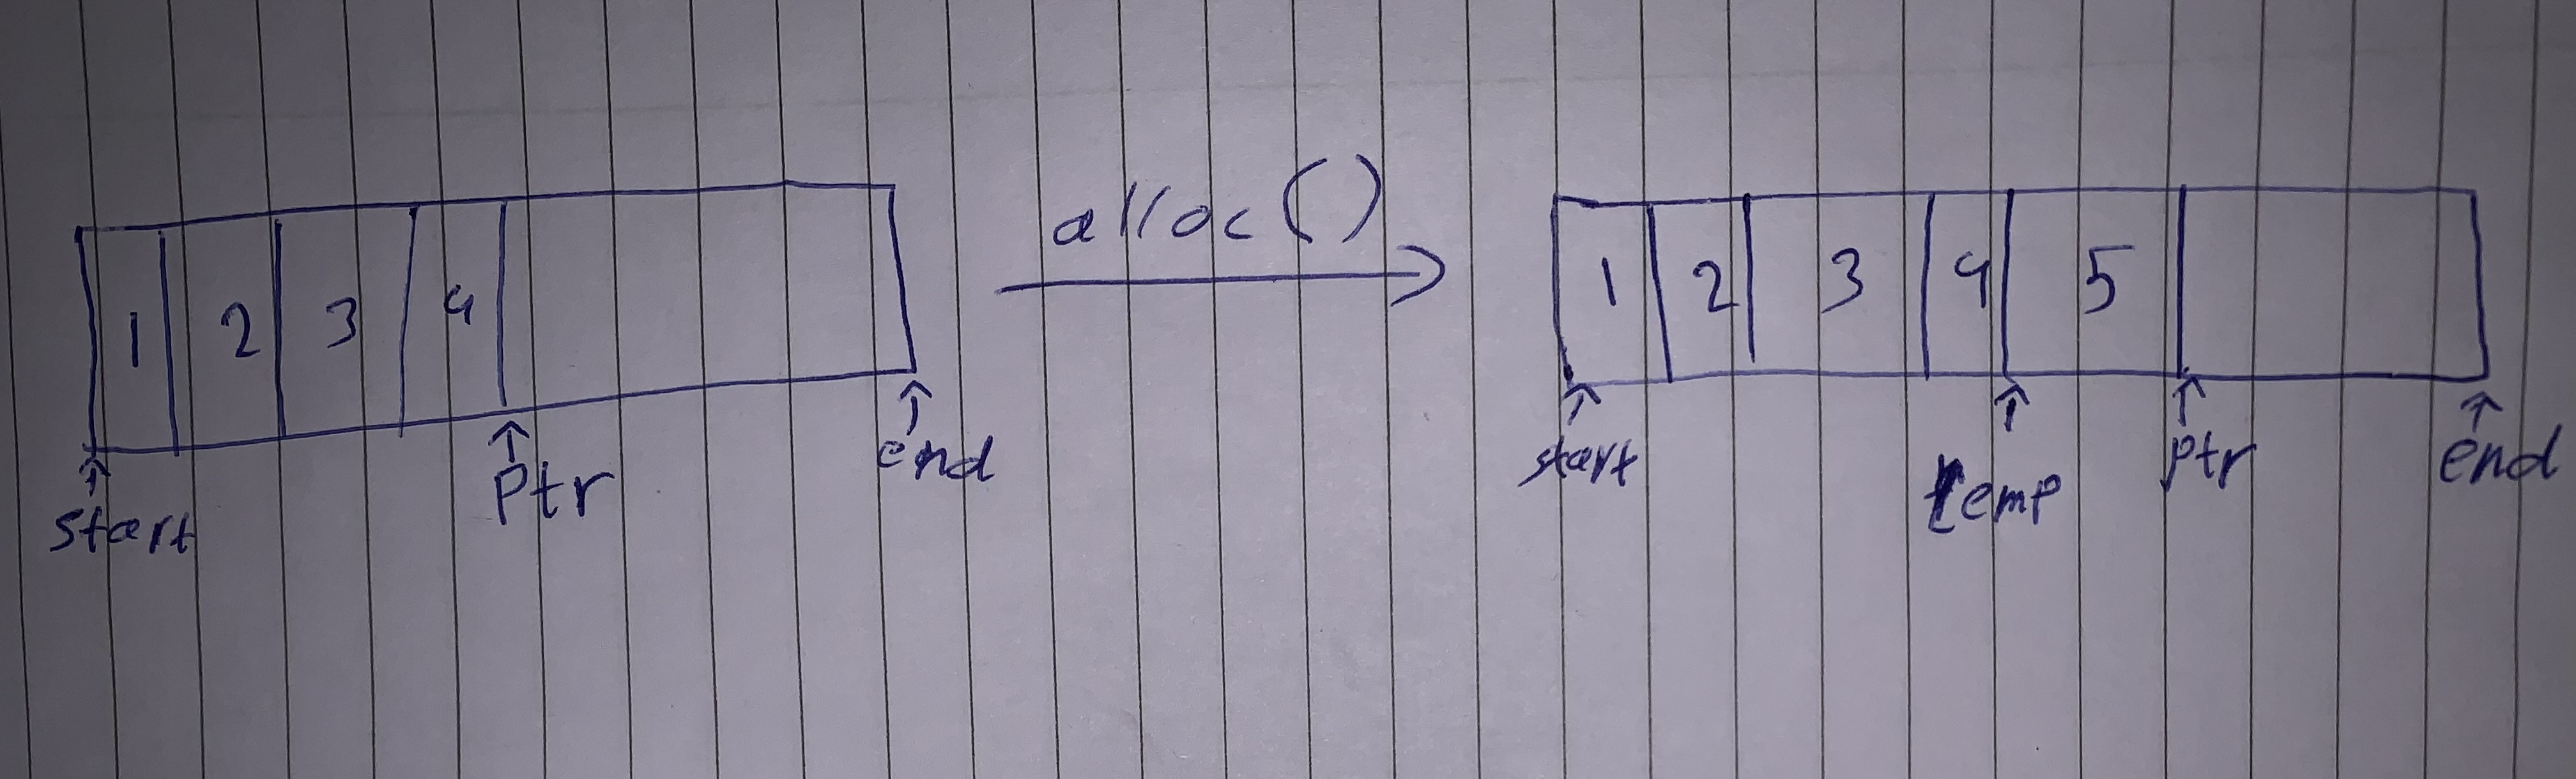 1 2 3 4
start
Ptr
end
alloc()
1 2 3 4 5
start
temp
ptr
end